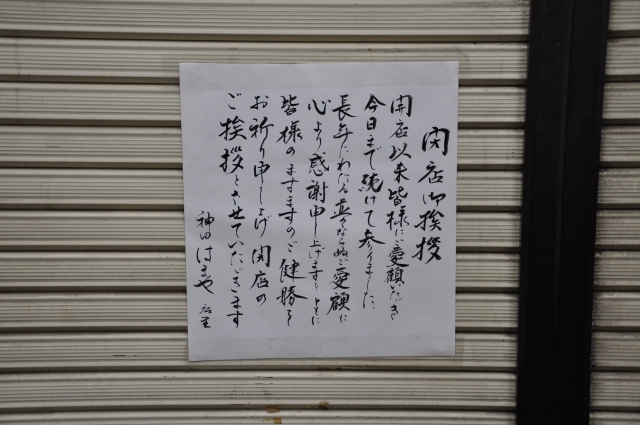 閉店御挨拶
開店以来皆様にご愛顧いただき
今日まで続けて参りました
長年にわたる並々ならぬご愛顧に
心より感謝申し上げますとともに
皆様のますますのご健勝を
お祈り申し上げ 閉店の
ご挨拶とさせていただきます
神田 はまや 店主